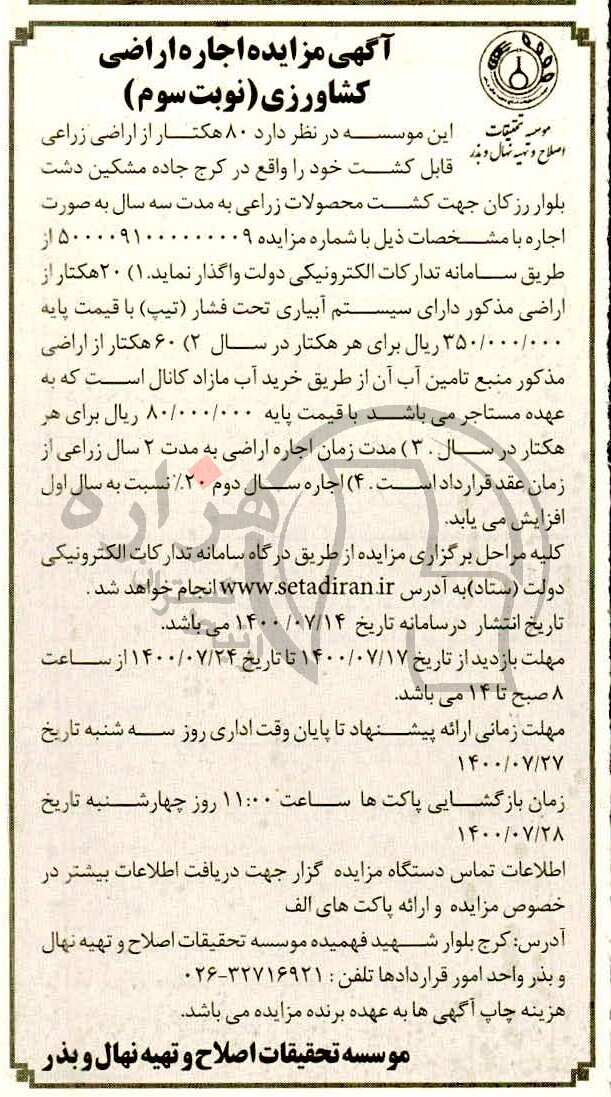 آگهی مزایده اجاره اراضی
کشاورزی (نوبت سوم)
موسسه تحقیقات
اصلاح و تهیه نهال و بذر
این موسسه در نظر دارد ۸۰ هکتار از اراضی زراعی
قابل کشت خود را واقع در کرج جاده مشکین دشت
بلوار رزکان جهت کشت محصولات زراعی به مدت سه سال به صورت
اجاره با مشخصات ذیل با شماره مزایده ۵۰۰۰۰۹۱۰۰۰۰۰۰۰۰۹ از
طریق سامانه تدارکات الکترونیکی دولت واگذار نماید. ۱) ۲۰هکتار از
اراضی مذکور دارای سیستم آبیاری تحت فشار (تیپ) با قیمت پایه
۳۵۰/۰۰۰/۰۰۰ ریال برای هر هکتار در سال ۲) ۶۰ هکتار از اراضی
مذکور منبع تامین آب آن از طریق خرید آب مازاد کانال است که به
عهده مستاجر می باشد با قیمت پایه ۸۰/۰۰۰/۰۰۰ ریال برای هر
هکتار در سال . ۳) مدت زمان اجاره اراضی به مدت ۲ سال زراعی از
زمان عقد قرارداد است . ۴) اجاره سال دوم ۲۰٪ نسبت به سال اول
افزایش می یابد.
کلیه مراحل برگزاری مزایده از طریق درگاه سامانه تدارکات الکترونیکی
دولت (ستاد)به آدرس www.setadiran.ir انجام خواهد شد .
تاریخ انتشار درسامانه تاریخ ۱۴۰۰/۰۷/۱۴ می باشد.
مهلت بازدید از تاریخ ۱۴۰۰/۰۷/۱۷ تا تاریخ ۱۴۰۰/۰۷/۲۴ از ساعت
۸ صبح تا ۱۴ می باشد.
مهلت زمانی ارائه پیشنهاد تا پایان وقت اداری روز سه شنبه تاریخ
۱۴۰۰/۰۷/۲۷
زمان بازگشایی پاکت ها ساعت ۱۱:۰۰ روز چهارشنبه تاریخ
۱۴۰۰/۰۷/۲۸
اطلاعات تماس دستگاه مزایده گزار جهت دریافت اطلاعات بیشتر در
خصوص مزایده و ارائه پاکت های الف
آدرس: کرج بلوار شهید فهمیده موسسه تحقیقات اصلاح و تهیه نهال
و بذر واحد امور قراردادها تلفن : ۳۲۷۱۶۹۲۱-۰۲۶
هزینه چاپ آگهی ها به عهده برنده مزایده می باشد.
موسسه تحقیقات اصلاح و تهیه نهال و بذر
هزاره